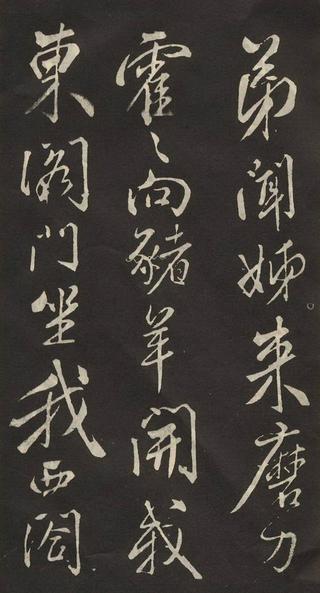 弟聞姊來磨刀
霍〻向豬羊開我
東閣門坐我西閣